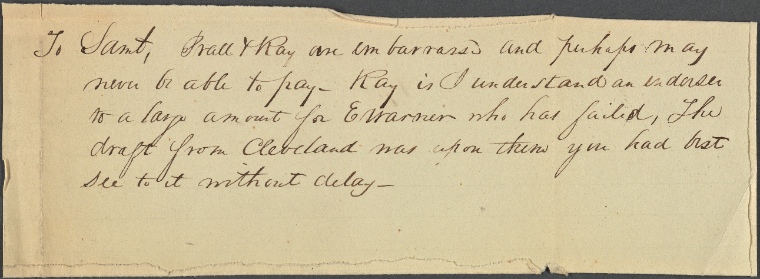 To Saml, Prall & Ray are embarrassd and perhaps may
never be able to pay— Ray is I understand an endorser
to a large amount for E Warner who has failed, The
draft from Cleveland was upon them you had best
see to it without delay—